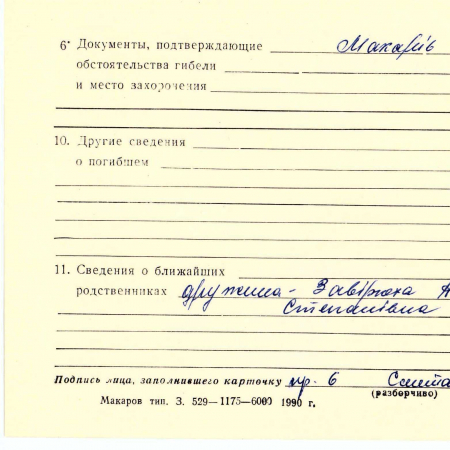 6• Документы, подтверждающие Макарів
обстоятельства гибели
и место захоронения
10. Другие сведения
о погибшем
11. Сведения о ближайших
родственниках дружина - Завірюха
Степанівна
Подпись лица, заполнившего карточку пр. 6
(разборчиво)
Макаров тип. З. 529—1175—6000 1990 г.